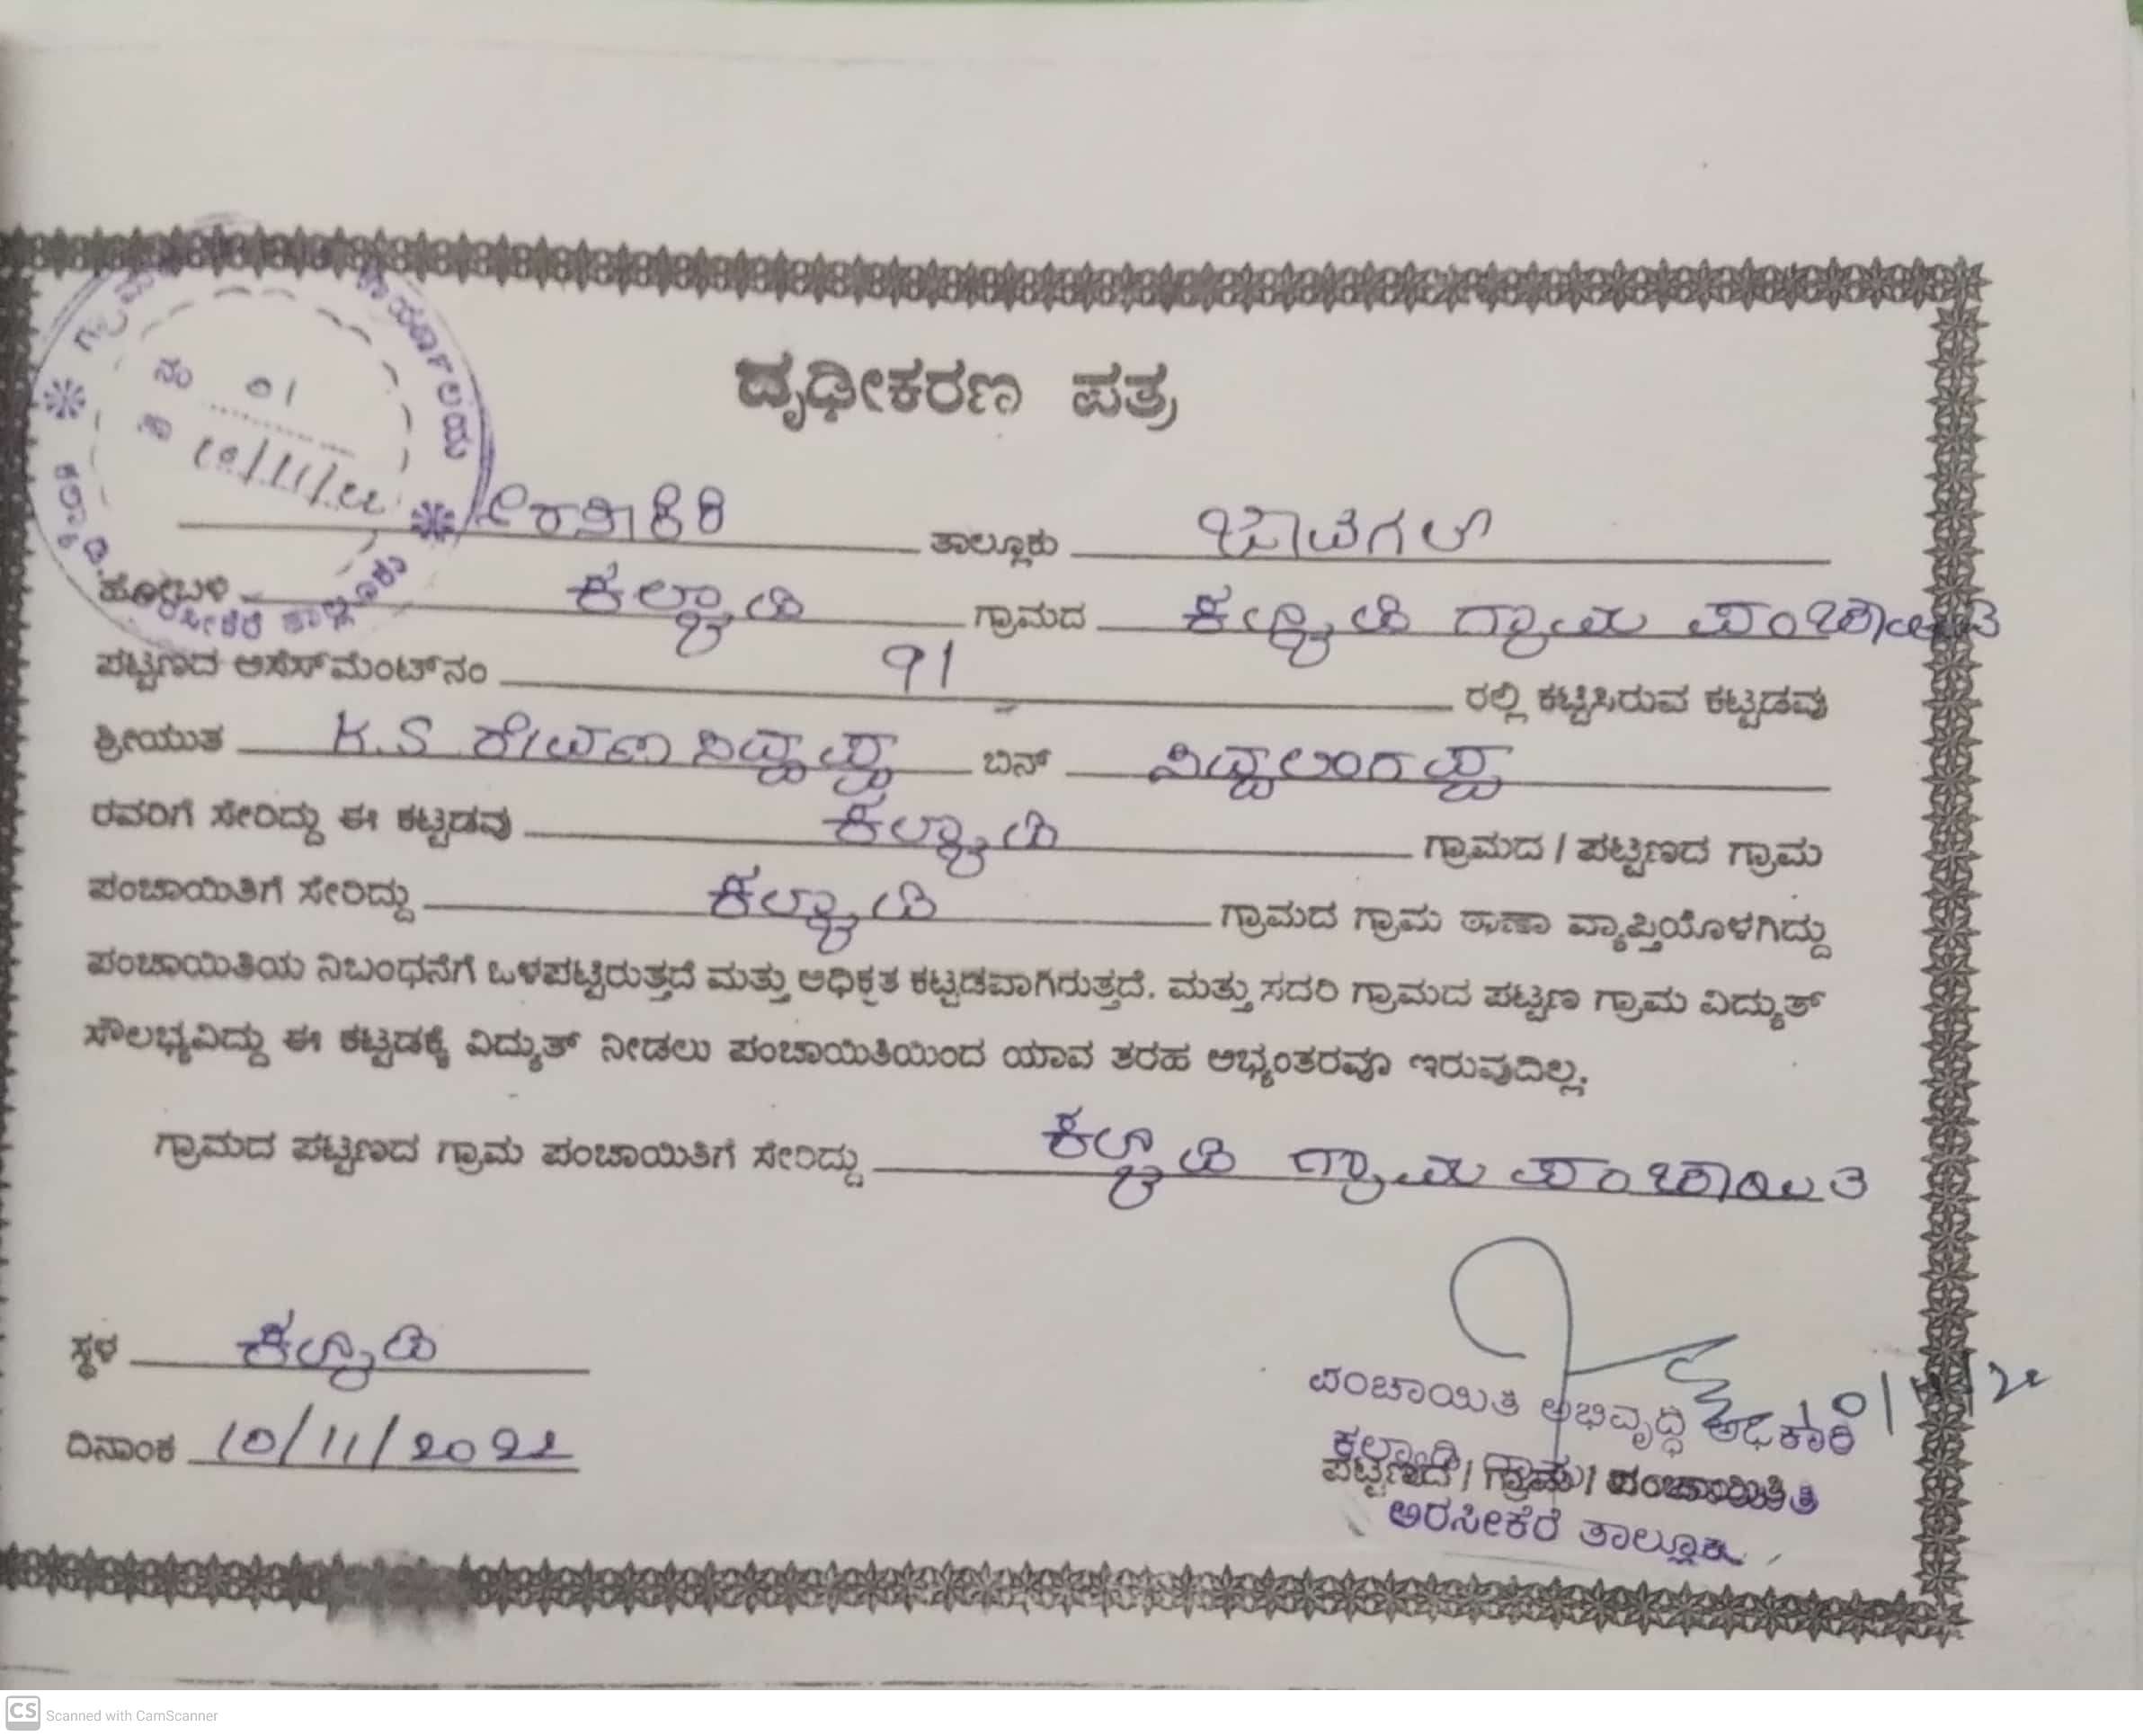 ದೃಢೀಕರಣ ಪತ್ರ
ನಂ 01
ದಿ 10/11/22
ತಾಲ್ಲೂಕು ಜಾವಗಲ್
ಹೋಬಳಿ ಕಲ್ಯಾಡಿ ಗ್ರಾಮದ ಕಲ್ಯಾಡಿ ಗ್ರಾಮ ಪಂಚಾಯಿತಿ
ಪಟ್ಟಣದ ಅಸೆಸ್‌ಮೆಂಟ್‌ನಂ 91 ರಲ್ಲಿ ಕಟ್ಟಿಸಿರುವ ಕಟ್ಟಡವು
ಶ್ರೀಯುತ K.S ರೇವಣಸಿದ್ದಪ್ಪ ಬಿನ್ ಸಿದ್ದಲಿಂಗಪ್ಪ
ರವರಿಗೆ ಸೇರಿದ್ದು ಈ ಕಟ್ಟಡವು ಕಲ್ಯಾಡಿ ಗ್ರಾಮದ / ಪಟ್ಟಣದ ಗ್ರಾಮ
ಪಂಚಾಯಿತಿಗೆ ಸೇರಿದ್ದು ಕಲ್ಯಾಡಿ ಗ್ರಾಮದ ಗ್ರಾಮ ಠಾಣಾ ವ್ಯಾಪ್ತಿಯೊಳಗಿದ್ದು
ಪಂಚಾಯಿತಿಯ ನಿಬಂಧನೆಗೆ ಒಳಪಟ್ಟಿರುತ್ತದೆ ಮತ್ತು ಅಧಿಕೃತ ಕಟ್ಟಡವಾಗಿರುತ್ತದೆ. ಮತ್ತು ಸದರಿ ಗ್ರಾಮದ ಪಟ್ಟಣ ಗ್ರಾಮ ವಿದ್ಯುತ್
ಸೌಲಭ್ಯವಿದ್ದು ಈ ಕಟ್ಟಡಕ್ಕೆ ವಿದ್ಯುತ್ ನೀಡಲು ಪಂಚಾಯಿತಿಯಿಂದ ಯಾವ ತರಹ ಅಭ್ಯಂತರವೂ ಇರುವುದಿಲ್ಲ.
ಗ್ರಾಮದ ಪಟ್ಟಣದ ಗ್ರಾಮ ಪಂಚಾಯಿತಿಗೆ ಸೇರಿದ್ದು ಕಲ್ಯಾಡಿ ಗ್ರಾಮ ಪಂಚಾಯಿತಿ
ಸ್ಥಳ ಕಲ್ಯಾಡಿ
ದಿನಾಂಕ 10/11/2022
ಪಂಚಾಯಿತಿ ಅಭಿವೃದ್ಧಿ ಅಧಿಕಾರಿ
ಪಟ್ಟಣದ / ಗ್ರಾಮ / ಪಂಚಾಯಿತಿ
ಅರಸೀಕೆರೆ ತಾಲ್ಲೂಕು
CS Scanned with CamScanner